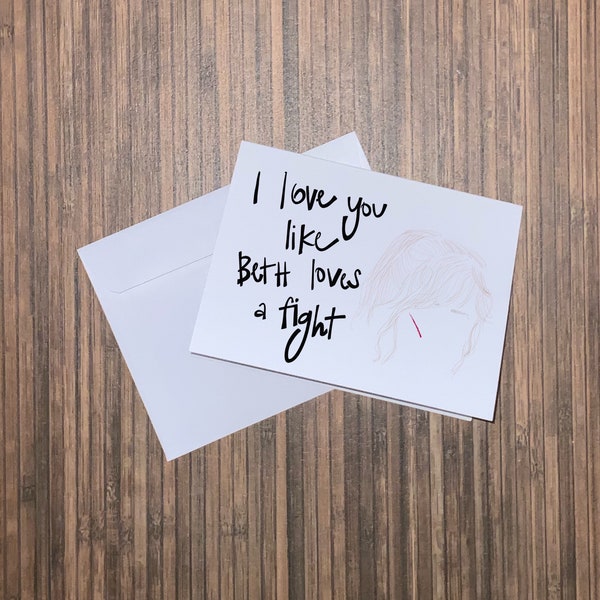 I love you
like
BetH loves
a fight